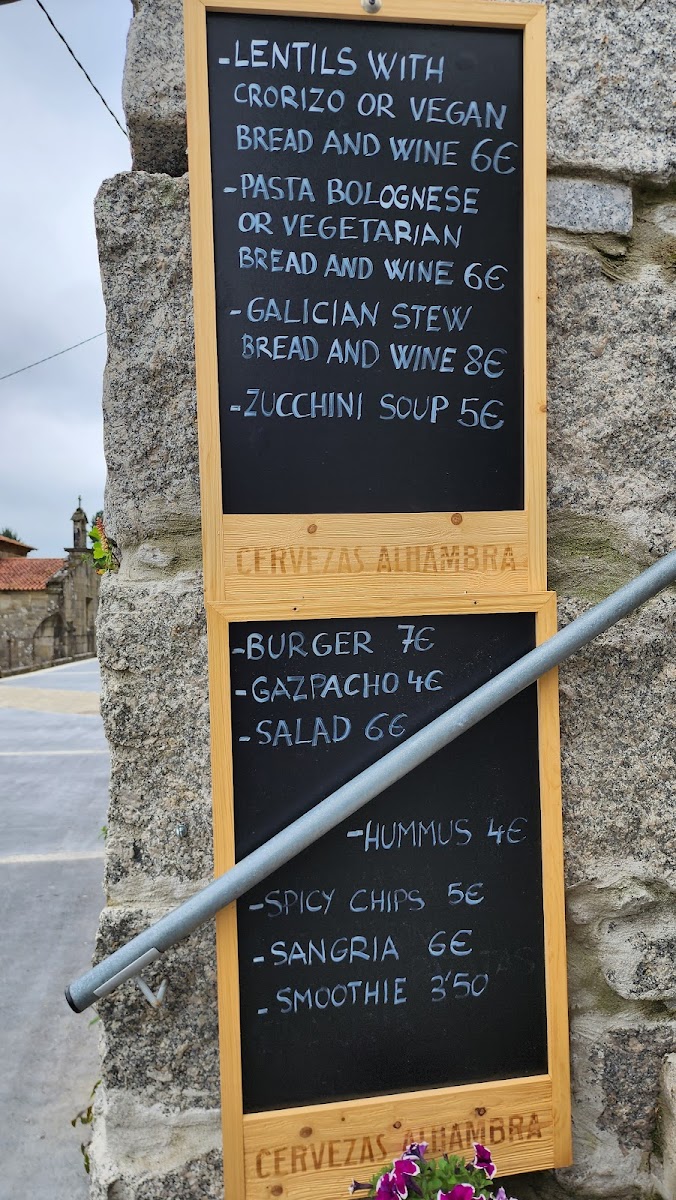 -LENTILS WITH
CRORIZO OR VEGAN
BREAD AND WINE 6€
-PASTA BOLOGNESE
OR VEGETARIAN
BREAD AND WINE 6€
-GALICIAN STEW
BREAD AND WINE 8€
-ZUCCHINI SOUP 5€
CERVEZAS ALHAMBRA
-BURGER 7€
-GAZPACHO 4€
-SALAD 6€
-HUMMUS 4€
-SPICY CHIPS 5€
-SANGRIA 6€
-SMOOTHIE 3'50
CERVEZAS ALHAMBRA